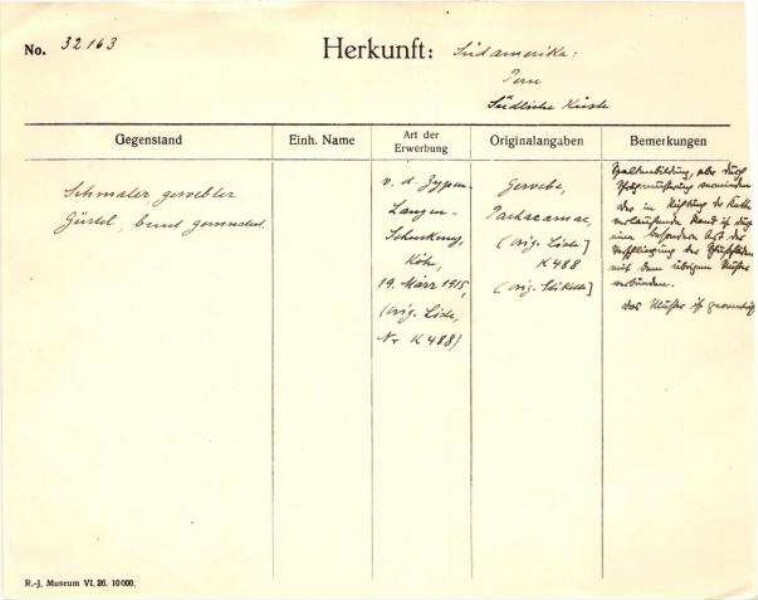 No. 32163
Herkunft: Südamerika:
Peru
Südliche Küste
Gegenstand
Einh. Name
Art der
Erwerbung
Originalangaben
Bemerkungen
Schmaler, gewebter
Gürtel, bunt gemustert.
v. d. Zypen-
Langen-
Schenkung,
Köln,
19. März 1915,
(orig. Liste,
Nr K 488)
Gewebe,
Pachacamac,
(orig. Liste]
K 488
(orig. Etikette]
Spaltenbildung, aber durch
vermieden
der in Richtung der Kette
verlaufende Rand ist durch
eine besondere Art der
Verschlingung der Schußfäden
mit dem übrigen Muster
verbunden.
Das Muster ist
R.-J. Museum VI. 26. 10000.